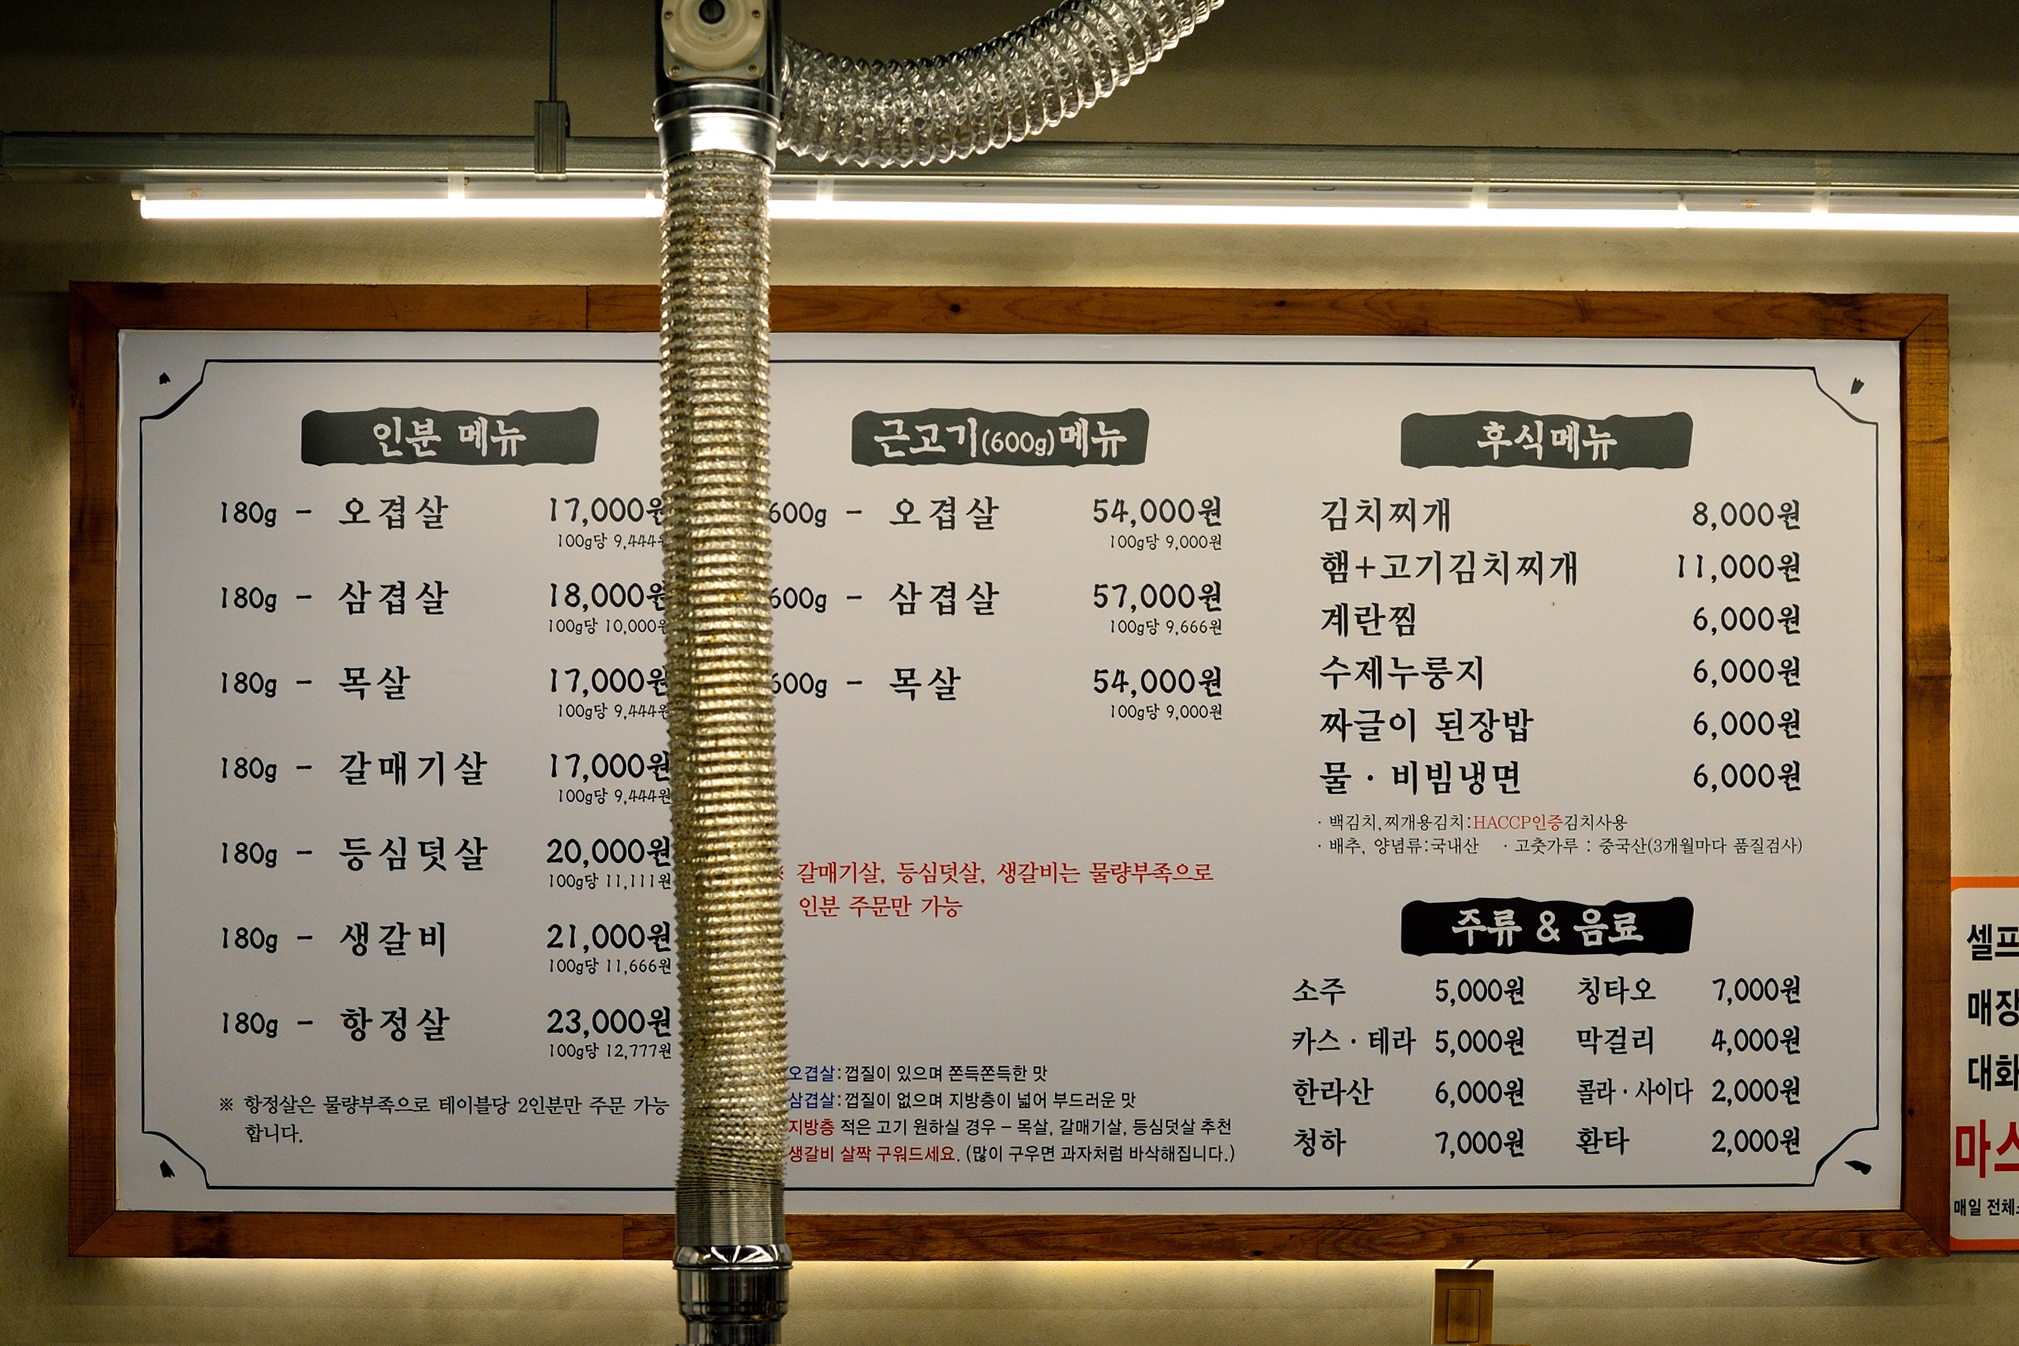 인분 메뉴
180g - 오겹살 17,000원
100g당 9,444원
180g - 삼겹살 18,000원
100g당 10,000원
180g - 목살 17,000원
100g당 9,444원
180g - 갈매기살 17,000원
100g당 9,444원
180g - 등심덧살 20,000원
100g당 11,111원
180g - 생갈비 21,000원
100g당 11,666원
180g - 항정살 23,000원
100g당 12,777원
※ 항정살은 물량부족으로 테이블당 2인분만 주문 가능
합니다.
근고기(600g)메뉴
600g - 오겹살 54,000원
100g당 9,000원
600g - 삼겹살 57,000원
100g당 9,666원
600g - 목살 54,000원
100g당 9,000원
※ 갈매기살, 등심덧살, 생갈비는 물량부족으로
인분 주문만 가능
오겹살:껍질이 있으며 쫀득쫀득한 맛
삼겹살:껍질이 없으며 지방층이 넓어 부드러운 맛
지방층 적은 고기 원하실 경우 - 목살, 갈매기살, 등심덧살 추천
생갈비 살짝 구워드세요. (많이 구우면 과자처럼 바삭해집니다.)
후식메뉴
김치찌개 8,000원
햄+고기김치찌개 11,000원
계란찜 6,000원
수제누룽지 6,000원
짜글이 된장밥 6,000원
물·비빔냉면 6,000원
· 백김치,찌개용김치:HACCP인증김치사용
· 배추, 양념류:국내산 · 고춧가루 : 중국산(3개월마다 품질검사)
주류 & 음료
소주 5,000원 칭타오 7,000원
카스·테라 5,000원 막걸리 4,000원
한라산 6,000원 콜라·사이다 2,000원
청하 7,000원 환타 2,000원
셀프
매장
대화
마스
매일 전체